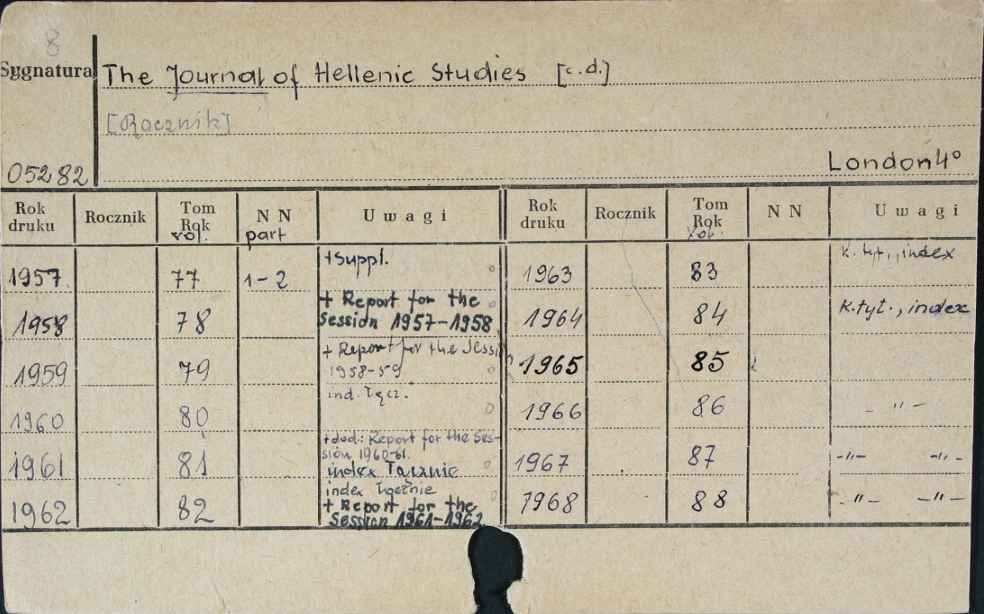 8
Sygnatura The Journal of Hellenic Studies [c.d.]
[Rocznik]
05282 London 4°
Rok druku Rocznik Tom Rok vol. NN part Uwagi Rok druku Rocznik Tom Rok vol. NN Uwagi
1957 77 1-2 +Suppl.
1958 78 + Report for the
Session 1957-1958
1959 79 + Report for the Sessi
1958-59
1960 80 ind. łącz.
1961 81 +dod.: Report for the Ses-
sion 1960-61.
index łącznie
1962 82 index łącznie
+ Report for the
Session 1961-1962
1963 83 k. tyt., index
1964 84 k. tyt., index
1965 85
1966 86 - " -
1967 87 -"- -"-
1968 88 -"- -"-